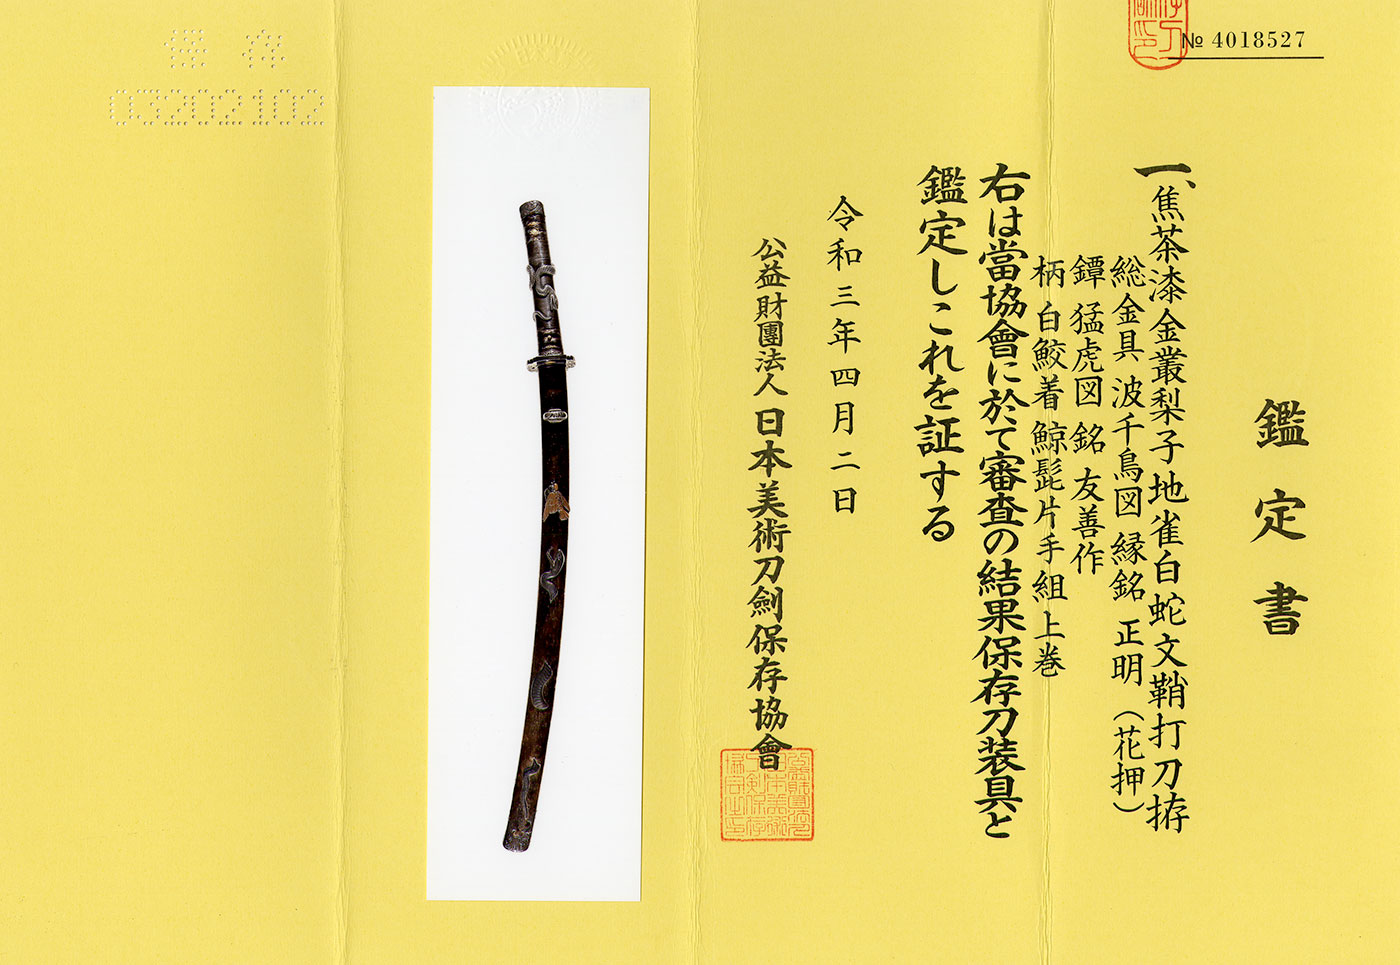 № 4018527
鑑定書
一、焦茶漆金叢梨子地雀白蛇文鞘打刀拵
総金具 波千鳥図 縁銘 正明（花押）
鐔 猛虎図 銘 友善作
柄 白鮫着 鯨髭片手組上巻
右は當協會に於て審査の結果保存刀装具と
鑑定しこれを証する
令和三年四月二日
公益財團法人 日本美術刀劍保存協會
保存
03202102